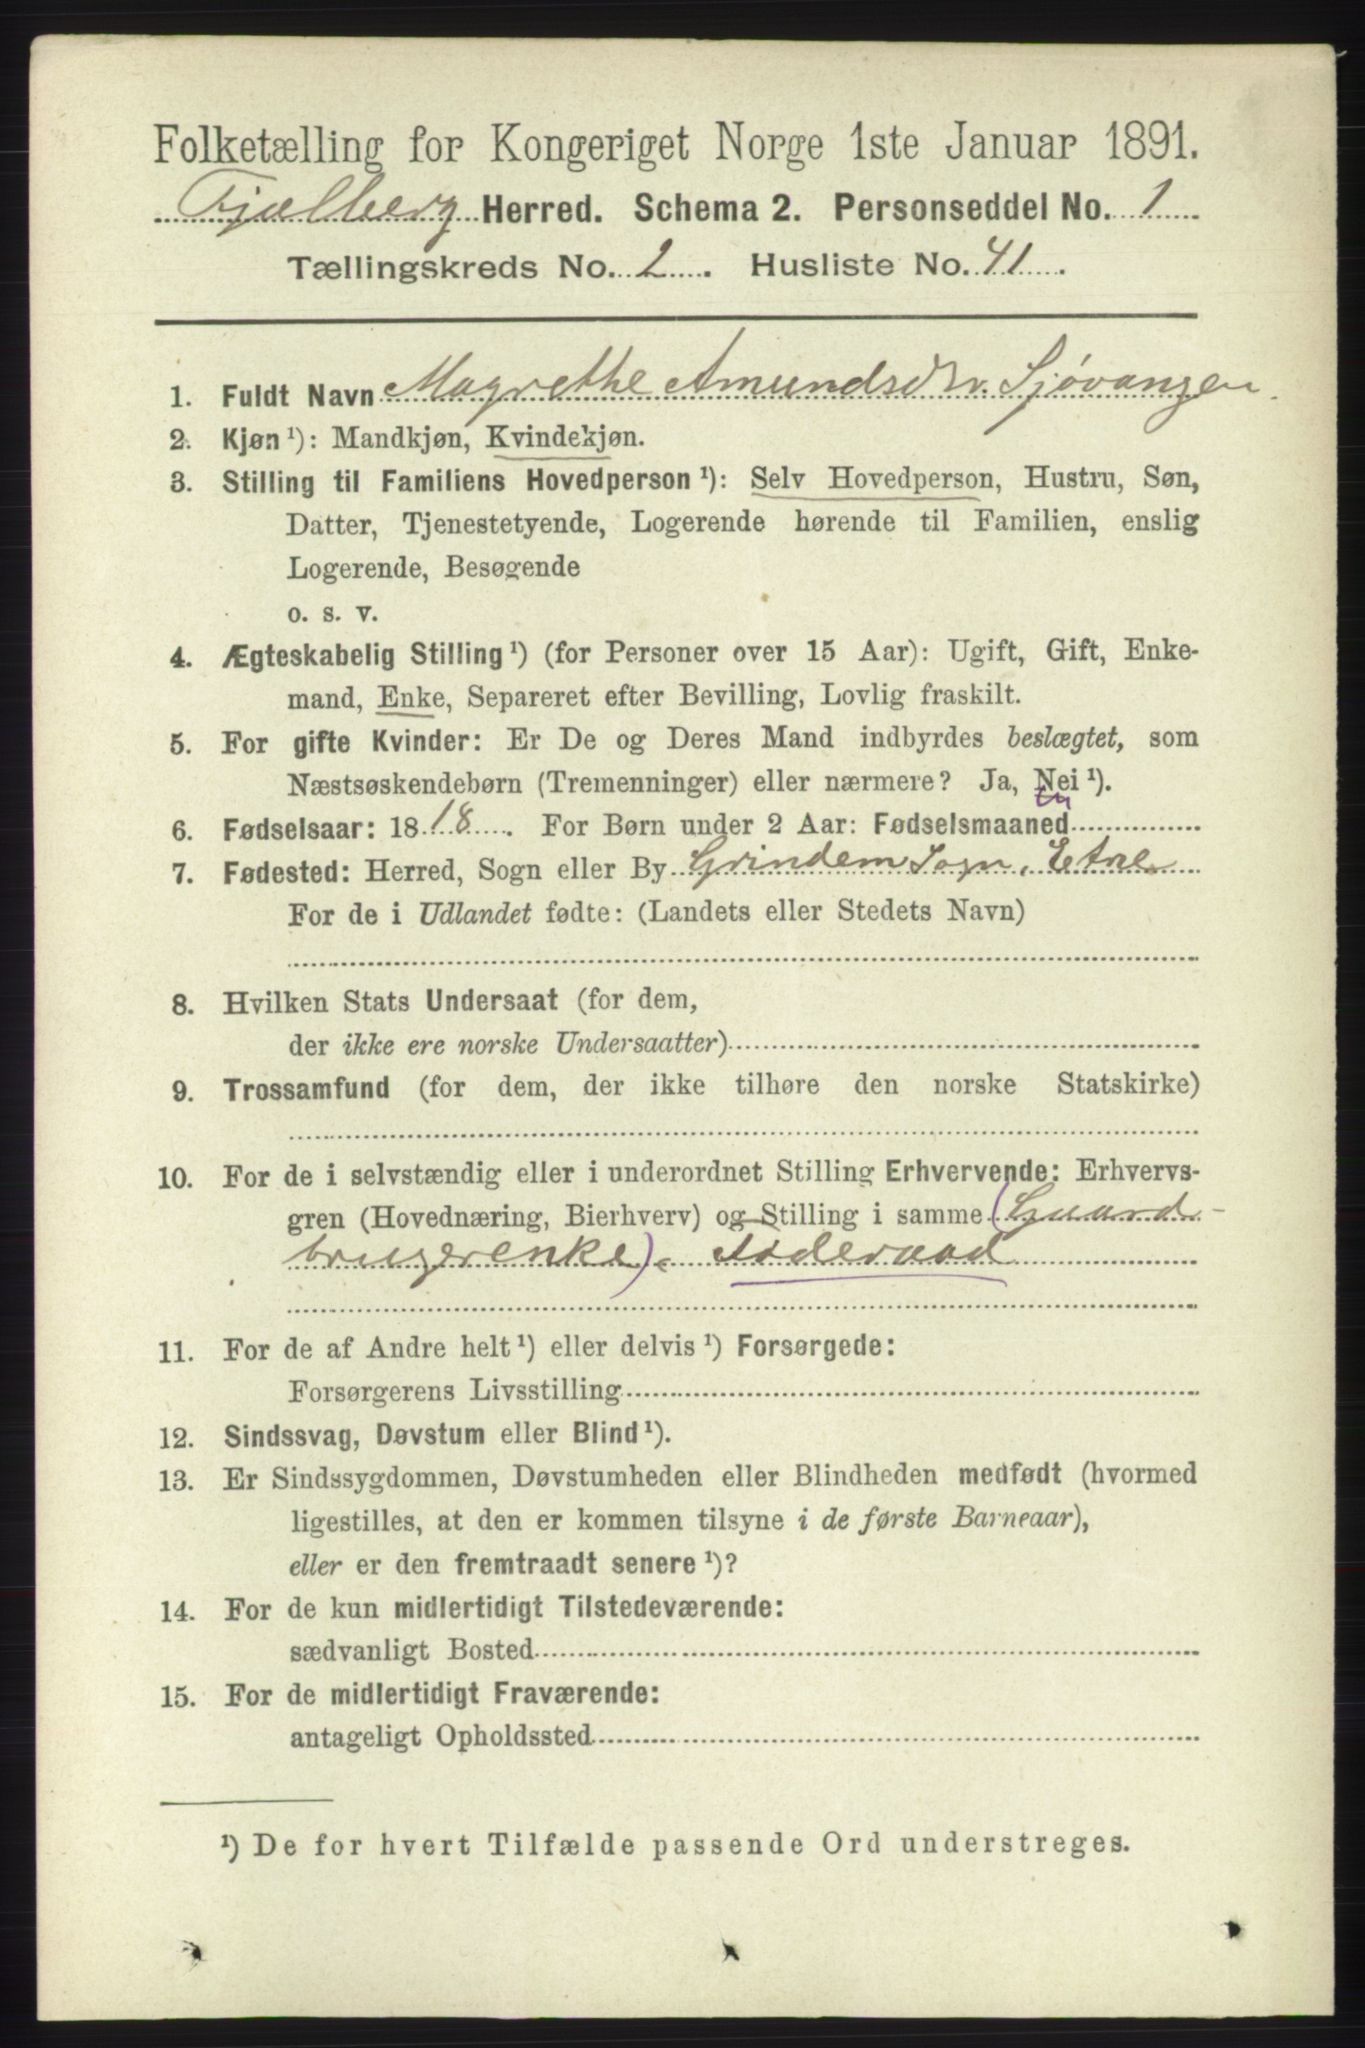 Folketælling for Kongeriget Norge 1ste Januar 1891.
Fjælberg Herred. Schema 2. Personseddel No. 1
Tællingskreds No. 2. Husliste No. 41.
1. Fuldt Navn Magrethe Amundsd Sjövangen
2. Kjøn ¹): Mandkjøn, Kvindekjøn.
3. Stilling til Familiens Hovedperson ¹): Selv Hovedperson, Hustru, Søn,
Datter, Tjenestetyende, Logerende hørende til Familien, enslig
Logerende, Besøgende
o. s. v.
4. Ægteskabelig Stilling ¹) (for Personer over 15 Aar): Ugift, Gift, Enke-
mand, Enke, Separeret efter Bevilling, Lovlig fraskilt.
5. For gifte Kvinder: Er De og Deres Mand indbyrdes beslægtet, som
Næstsøskendebørn (Tremenninger) eller nærmere? Ja, Nei ¹).
6. Fødselsaar: 1818. For Børn under 2 Aar: Fødselsmaaned
7. Fødested: Herred, Sogn eller By Grindem Sogn, Etne
For de i Udlandet fødte: (Landets eller Stedets Navn)
8. Hvilken Stats Undersaat (for dem,
der ikke ere norske Undersaatter)
9. Trossamfund (for dem, der ikke tilhøre den norske Statskirke)
10. For de i selvstændig eller i underordnet Stilling Erhvervende: Erhvervs-
gren (Hovednæring, Bierhverv) og Stilling i samme (Gaard-
brugerenke). Föderaad
11. For de af Andre helt ¹) eller delvis ¹) Forsørgede:
Forsørgerens Livsstilling
12. Sindssvag, Døvstum eller Blind ¹).
13. Er Sindssygdommen, Døvstumheden eller Blindheden medfødt (hvormed
ligestilles, at den er kommen tilsyne i de første Barneaar),
eller er den fremtraadt senere ¹)?
14. For de kun midlertidigt Tilstedeværende:
sædvanligt Bosted
15. For de midlertidigt Fraværende:
antageligt Opholdssted
¹) De for hvert Tilfælde passende Ord understreges.